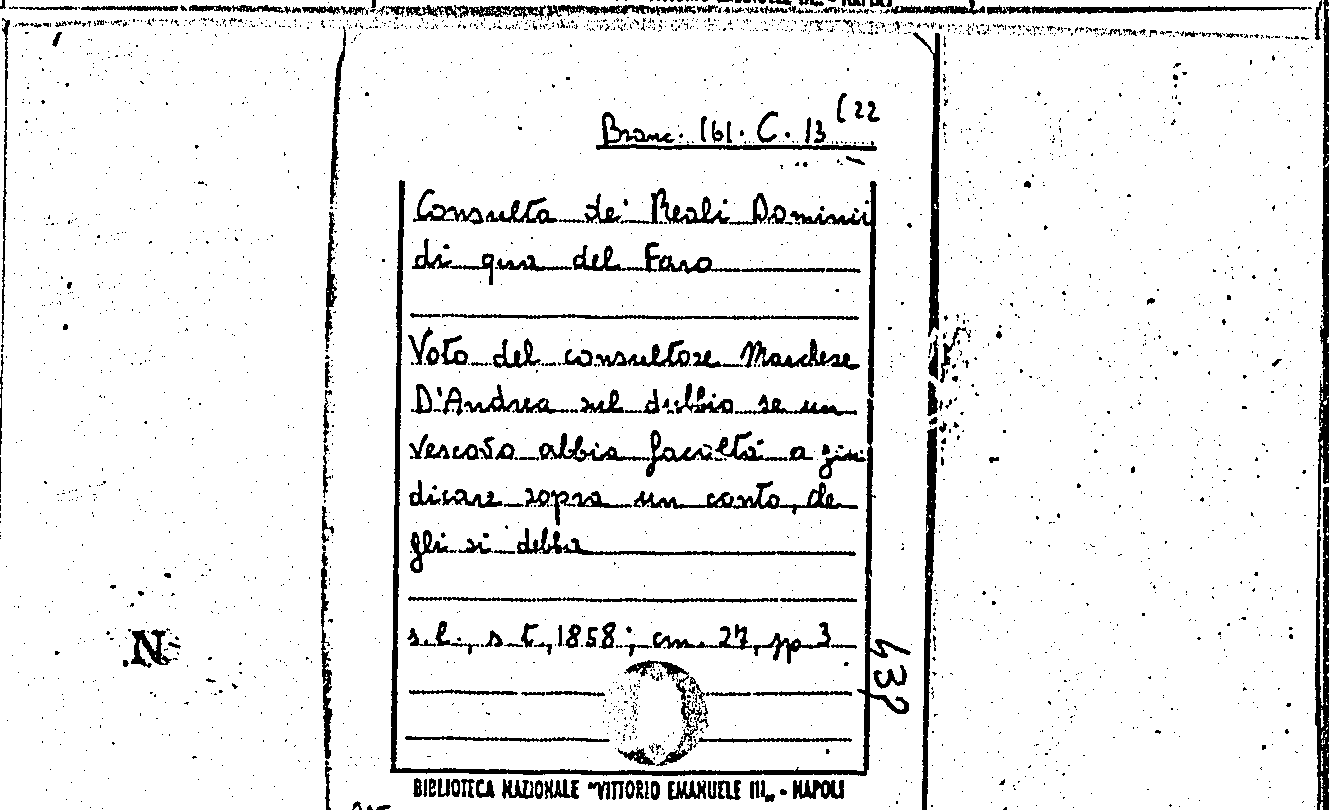 Branc. 161. C. 13 (22
Consulta de' Reali Dominii
di qua del Faro
Voto del consultore Marchese
D'Andrea sul dubbio se un
Vescovo abbia facoltà a giu
dicare sopra un conto, che
gli si debba
s.l., s.t., 1858; cm. 27, pp 3
432
N
BIBLIOTECA NAZIONALE "VITTORIO EMANUELE III„ - NAPOLI